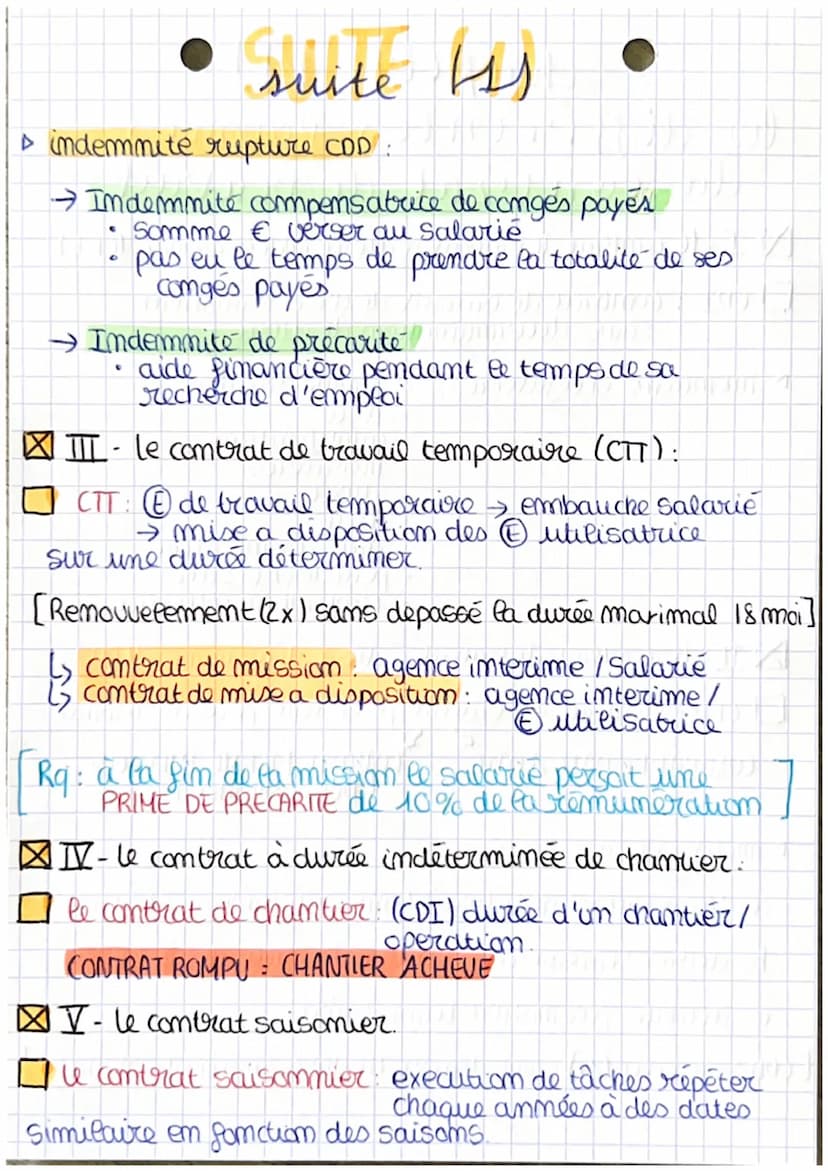 SUITE (1)
suite (1)
▷ indemmité rupture CDD :
→ Indemmité compensatrice de congés payés
• Somme € verser au salarié
• pas eu le temps de prendre la totalité de ses
congés payés
→ Indemnité de précarité
• aide financière pendant le temps de sa
recherche d'emploi
III - le contrat de travail temporaire (CTT) :
CTT : Ⓔ de travail temporaire → embauche salarié
→ mise a disposition des Ⓔ utilisatrice
sur une durée déterminer.
[Renouvellement (2x) sans depassé la durée maximal 18 moi]
↳ contrat de mission : agence interime / Salarié
↳ contrat de mise a disposition : agence interime /
Ⓔ utilisatrice
[Rq : à la fin de la mission le salarié persoit une
PRIME DE PRECARITE de 10% de la rémunération]
IV - le contrat à durée indéterminée de chantier :
le contrat de chantier : (CDI) durée d'un chantier /
operation.
CONTRAT ROMPU = CHANTIER ACHEVE
V - le contrat saisonier.
le contrat saisonnier : execution de tâches répéter
chaque années à des dates
similaire en fonction des saisons.